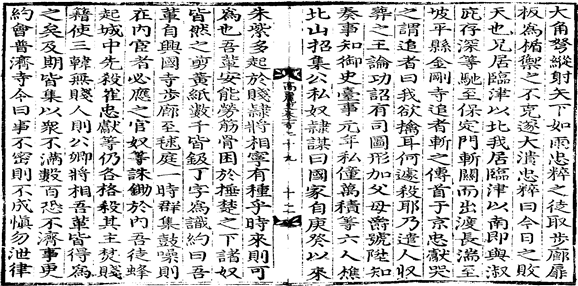 大角弩縱射矢下如雨忠粹之徒取步廊扉
板為楯禦之不克遂大潰忠粹曰今日之敗
天也兄居臨津以北我居臨津以南即與淑
庇存深等馳至保定門斬關而出渡長湍至
坡平縣金剛寺追者斬之傳首于京忠獻哭
之謂追者曰我欲擒耳何遽殺耶乃遣人收
葬之王論功詔有司圖形加父母爵號陞知
奏事知御史臺事元年私僮萬積等六人樵
北山招集公私奴隷謀曰國家自庚癸以來
高麗史卷百二十九 十二
朱紫多起於賤隷將相寧有種乎時來則可
為也吾輩安能勞筋骨困於捶楚之下諸奴
皆然之剪黃紙數千皆鈒丁字為識約曰吾
輩自興國寺步廊至毬庭一時群集鼓噪則
在內宦者必應之官奴等誅鋤於內吾徒蜂
起城中先殺崔忠獻等仍各格殺其主焚賤
籍使三韓無賤人則公卿將相吾輩皆得為
之矣及期皆集以眾不滿數百恐不濟事更
約會普濟寺令曰事不密則不成慎勿泄律